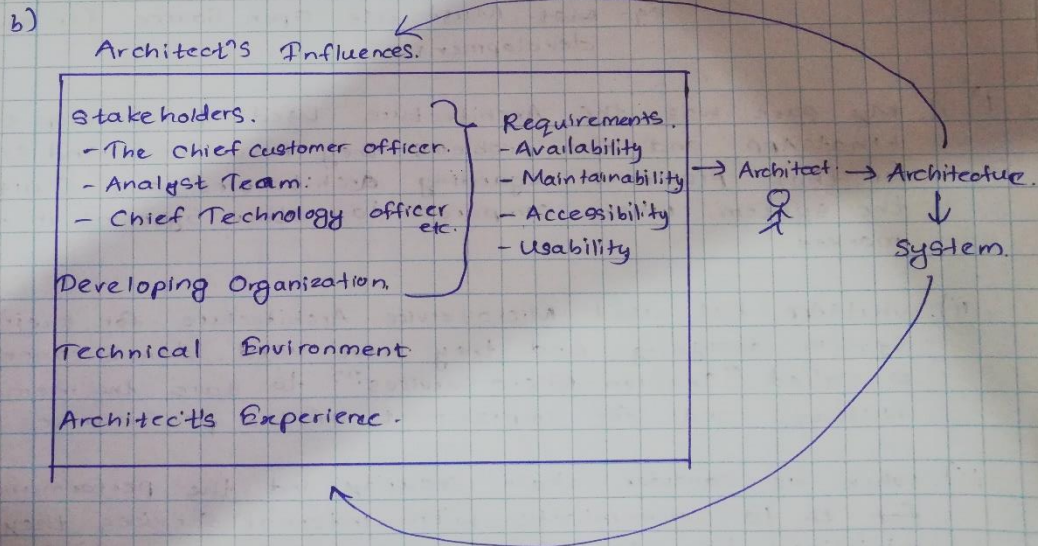 b)
Architect's Influences.
Stakeholders.
- The Chief Customer officer.
- Analyst Team.
- Chief Technology officer
etc.
Developing Organization.
Technical Environment
Architect's Experience.
Requirements.
- Availability
- Maintainability
- Accessibility
- Usability
→ Architect → Architecture.
↓
System.